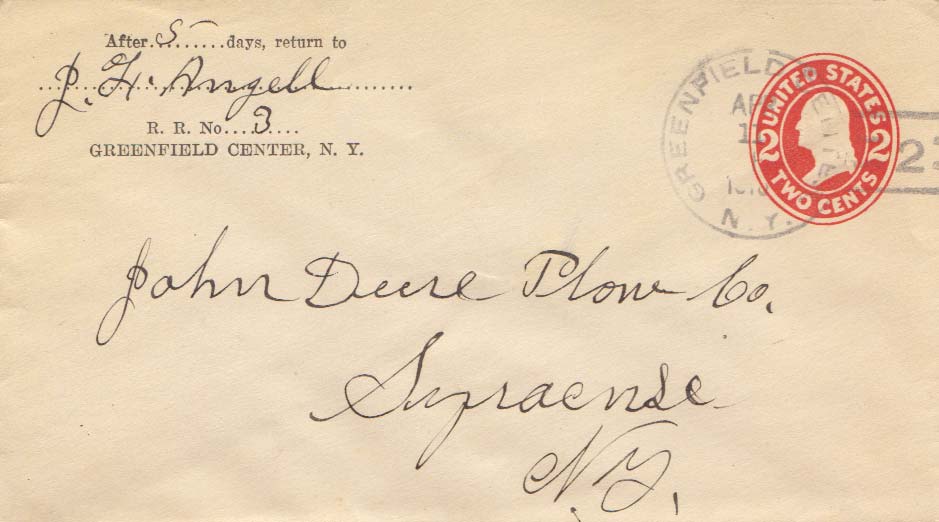 After. 5 .......days, return to
J. H. Angell
R. R. No.... 3 ....
GREENFIELD CENTER, N. Y.
GREENFIELD CENTER
APR
N.Y.
UNITED STATES
2 2
TWO CENTS
2
John Deere Plow Co.
Syracuse
N.Y.